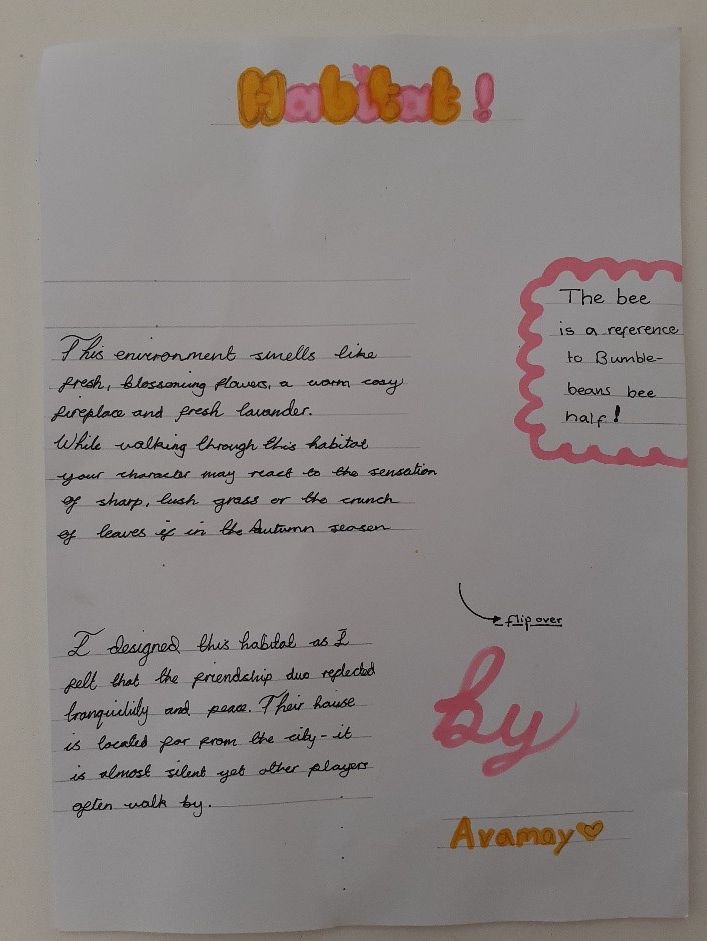 Habitat!
The bee
is a reference
to Bumble-
beans bee
half!
This environment smells like
fresh, blossoming flowers, a warm cosy
fireplace and fresh lavander.
While walking through this habitat
your character may react to the sensation
of sharp, lush grass or the crunch
of leaves if in the Autumn season
flip over
I designed this habitat as I
felt that the friendship duo reflected
tranquilily and peace. Their house
is located far from the city-it
is almost silent yet other players
often walk by.
by
Avamay♡